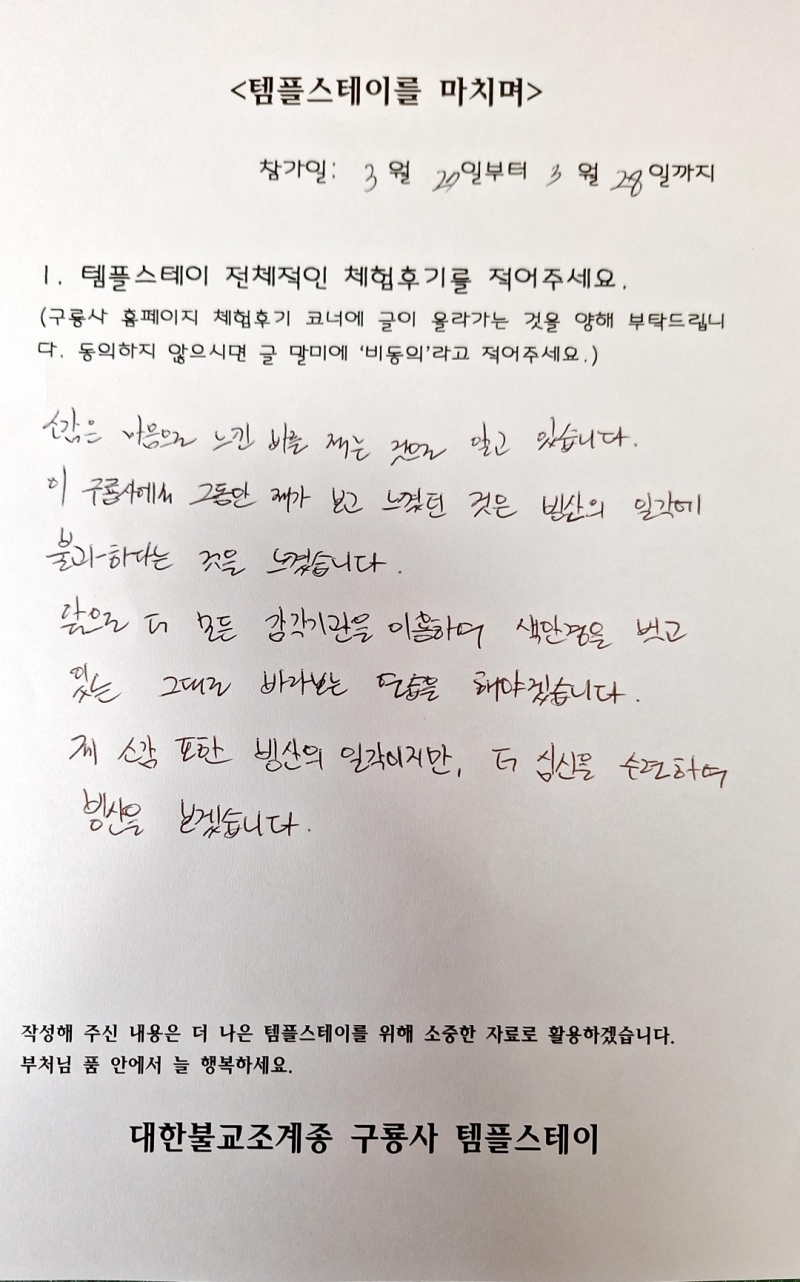 <템플스테이를 마치며>
참가일: 3 월 27일부터 3 월 28일까지
1. 템플스테이 전체적인 체험후기를 적어주세요.
(구룡사 홈페이지 체험후기 코너에 글이 올라가는 것을 양해 부탁드립니
다. 동의하지 않으시면 글 말미에 '비동의'라고 적어주세요.)
소감은 마음으로 느낀 바를 적는 것으로 알고 있습니다.
이 구룡사에서 그동안 제가 보고 느꼈던 것은 빙산의 일각에
불과하다는 것을 느꼈습니다.
앞으로 더 모든 감각기관을 이용하여 색안경을 벗고
있는 그대로 바라보는 연습을 해야겠습니다.
제 소감 또한 빙산의 일각이지만, 더 심신을 수련하여
빙산을 보겠습니다.
작성해 주신 내용은 더 나은 템플스테이를 위해 소중한 자료로 활용하겠습니다.
부처님 품 안에서 늘 행복하세요.
대한불교조계종 구룡사 템플스테이